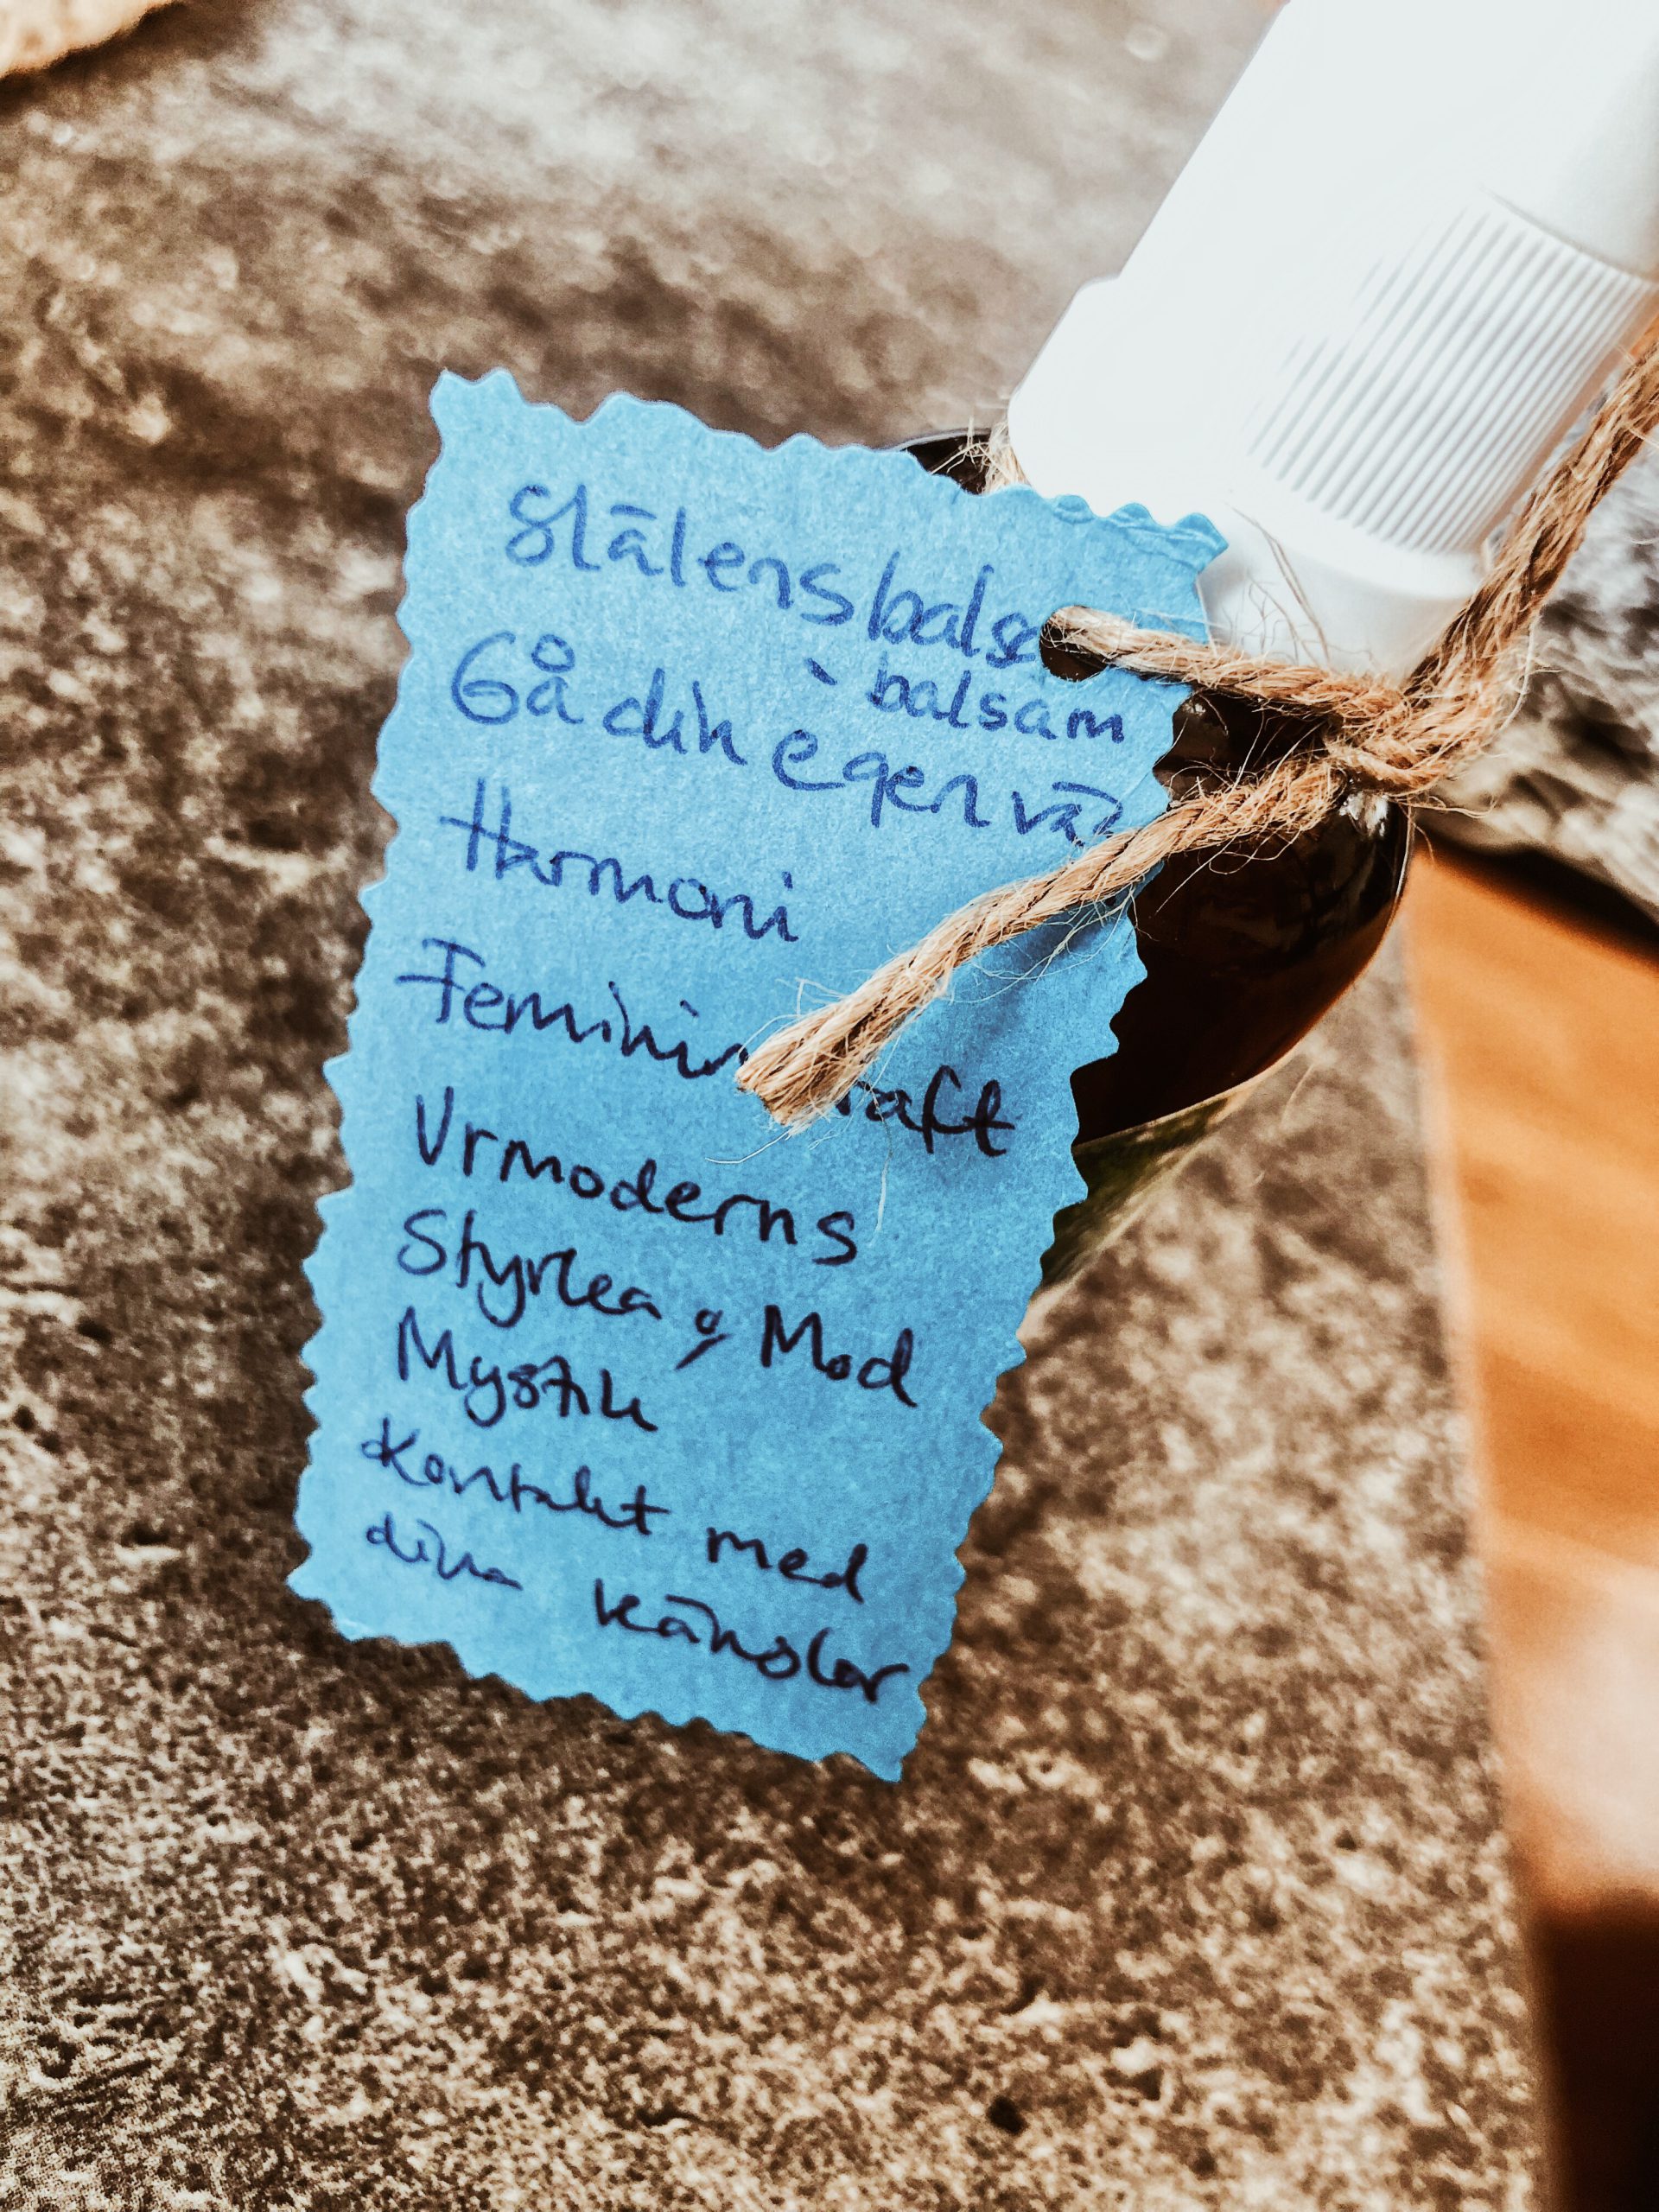 Själens balsa
- balsam
Gå din egen väg
Harmoni
Feminin kraft
Urmoderns
Styrka & Mod
Mystik
Kontakt med
dina känslor